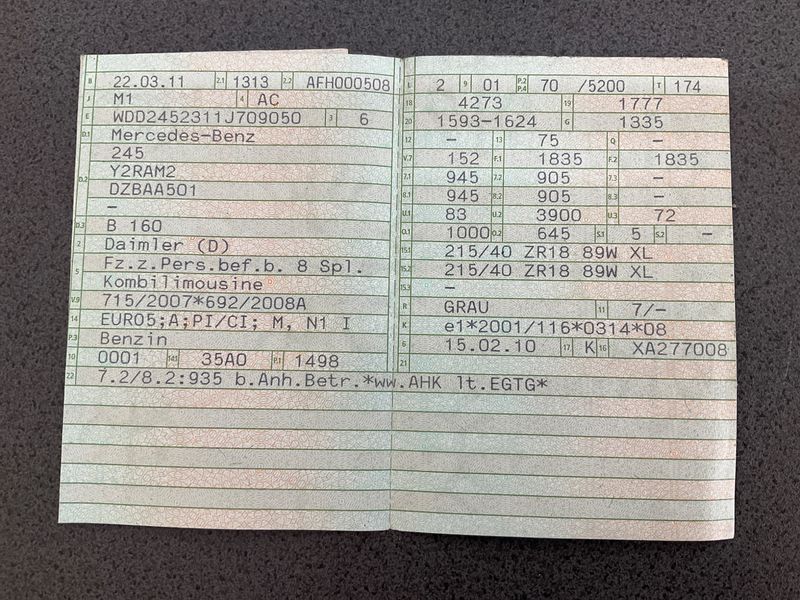 B 22.03.11 2.1 1313 2.2 AFH000508
J M1 4 AC
E WDD2452311J709050 3 6
D.1 Mercedes-Benz
245
D.2 Y2RAM2
DZBAA501
–
D.3 B 160
2 Daimler (D)
5 Fz.z.Pers.bef.b. 8 Spl.
Kombilimousine
V.9 715/2007*692/2008A
14 EURO5;A;PI/CI; M, N1 I
P.3 Benzin
10 0001 14.1 35A0 P.1 1498
22 7.2/8.2:935 b.Anh.Betr.*ww.AHK lt.EGTG*
L 2 9 01 P.2 P.4 70 /5200 T 174
18 4273 19 1777
20 1593-1624 G 1335
12 – 13 75 Q –
V.7 152 F.1 1835 F.2 1835
7.1 945 7.2 905 7.3 –
8.1 945 8.2 905 8.3 –
U.1 83 U.2 3900 U.3 72
O.1 1000 O.2 645 S.1 5 S.2 –
15.1 215/40 ZR18 89W XL
15.2 215/40 ZR18 89W XL
15.3 –
R GRAU 11 7/–
K e1*2001/116*0314*08
6 15.02.10 17 K 16 XA277008
21